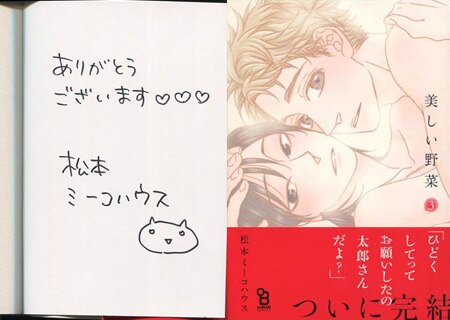 ありがとう
ございます♡♡♡
松本
ミーコハウス
美しい野菜
3
「ひどく
してって
お願いしたの
太郎さん
だよ?」
松本ミーコハウス
ついに完結